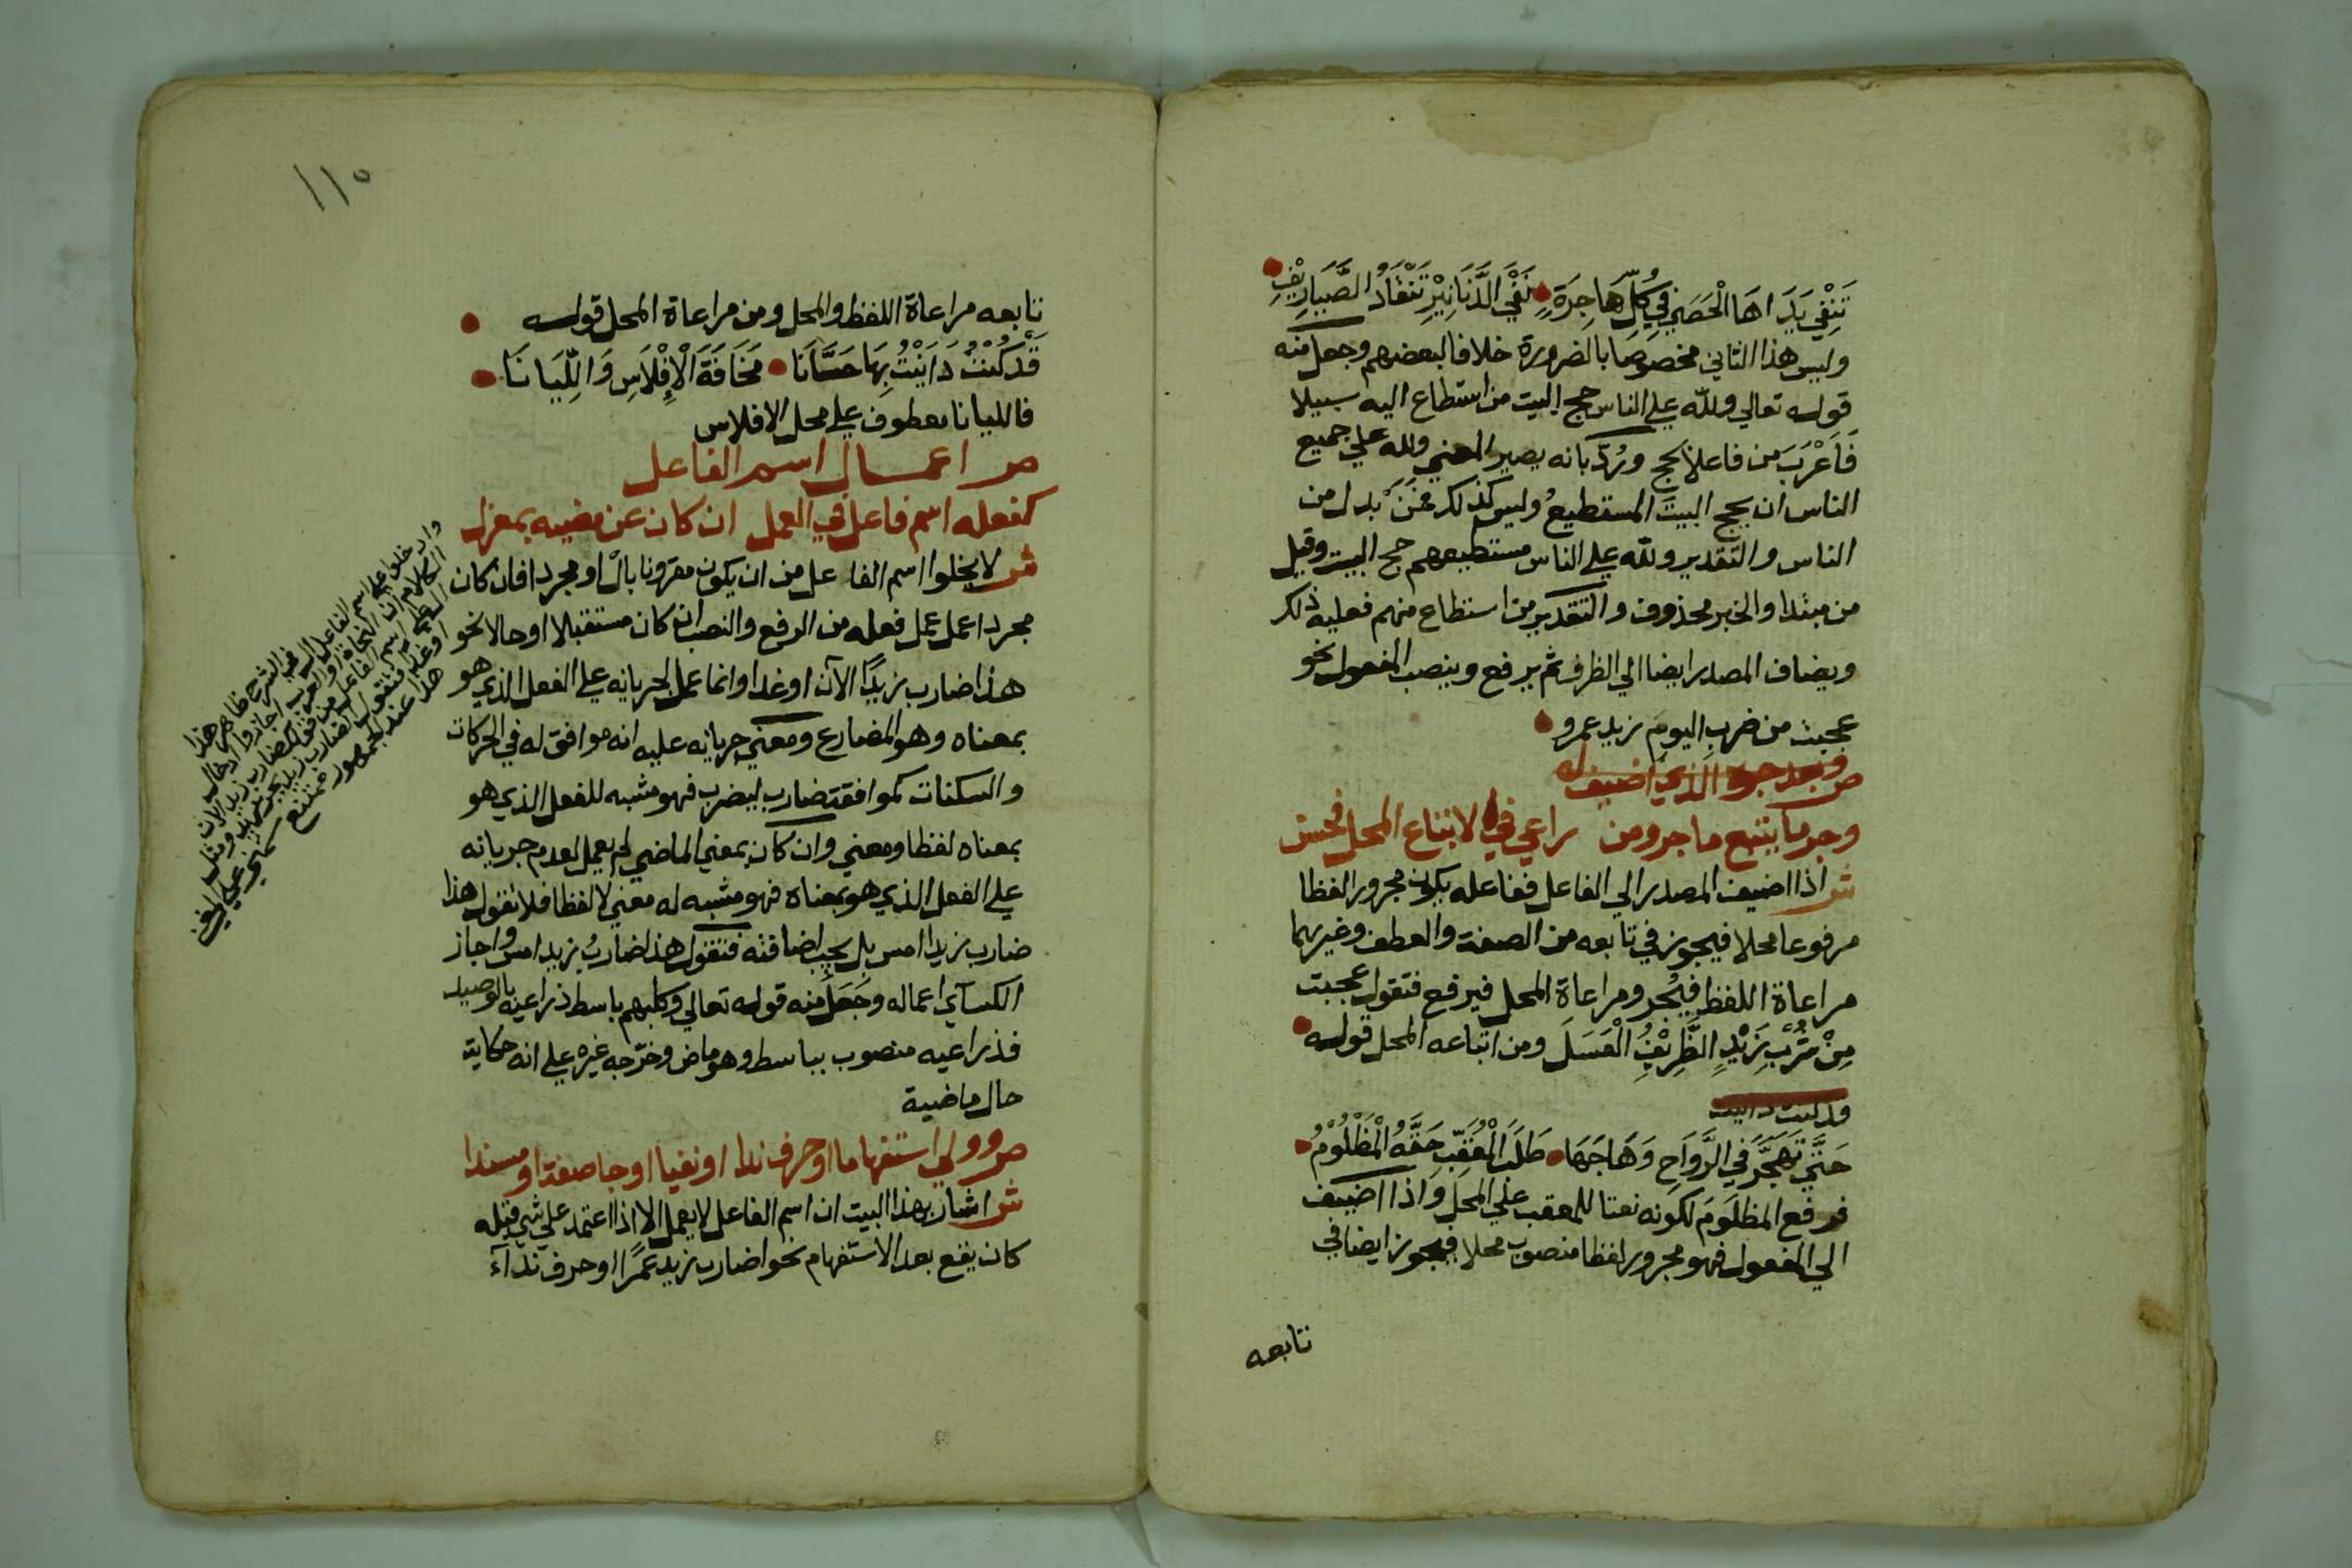 تَنْفِي يَدَاهَا الْحَصَى فِي كُلِّ هَاجِرَةٍ نَفْيَ الدَّنَانِيْرِ تَنْقَادُ الصَّيَارِيْفِ
وليس هذا الثاني مخصوصا بالضرورة خلافا لبعضهم وجعل منه
قوله تعالي ولله علي الناس حج البيت من استطاع اليه سبيلا
فَاَعْرَبَ من فاعلا بحج ورُدّ بانه يصير المعني ولله علي جميع
الناس ان يحج البيتَ المستطيعُ وليس كذلك فمَنْ بدل من
الناس والتقدير ولله علي الناس مستطيعهم حج البيت وقيل
من مبتدا والخبر محذوف والتقدير من استطاع منهم فعليه ذلك
ويضاف المصدر ايضا الي الظرف ثم يرفع وينصب المفعول نحو
عجبت من ضرب اليومَ زيد عمرو
ص وبعد جره الذي اضيف له
وجر ما يتبع ما جر ومن راعي في الاتباع المحل فحسن
ش اذا اضيف المصدر الي الفاعل ففاعله يكون مجرورا لفظا
مرفوعا محلا فيجوز في تابعه من الصفة والعطف وغيرهما
مراعاة اللفظ فيُجر ومراعاة المحل فيرفع فتقول عجبت
مِنْ شُرْبِ زَيْدٍ الظَّرِيْفِ الْعَسَلَ ومن اتباعه المحل قوله
قد كنت داينت
حَتَّي تَهَجَّرَ فِي الرَّوَاحِ وَهَاجَهَا طَلَبَ الْمُعَقِّبِ حَقَّهُ الْمَظْلُوْمُ
فرفع المظلوم لكونه نعتا للمعقب علي المحل واذا اضيف
الي المفعول فهو مجرور لفظا منصوب محلا فيجوز ايضا في
تابعه
١١٥
تابعه مراعاة اللفظ والمحل ومن مراعاة المحل قوله
قَدْ كُنْتُ دَايَنْتُ بِهَا حَسَّانَا مَخَافَةَ الْاِفْلَاسِ وَاللِّيَانَا
فالليانا معطوف علي محل الافلاس
ص اعمال اسم الفاعل
كفعله اسم فاعل في العمل ان كان عن مضيه بمعزل
ش لا يخلوا اسم الفاعل من ان يكون مقرونا بالْ او مجردا فان كان
مجردا عمل عمل فعله من الرفع والنصب ان كان مستقبلا او حالا نحو
هذا ضارب زيدًا الآن او غدا وانما عمل لجريانه علي الفعل الذي هو
بمعناه وهو المضارع ومعني جريانه عليه انه موافق له في الحركات
والسكنات كموافقة ضارب ليضرب فهو مشبه للفعل الذي هو
بمعناه لفظا ومعني وان كان بمعني الماضي لم يعمل لعدم جريانه
علي الفعل الذي هو بمعناه فهو مشبه له معني لا لفظا فلا تقول هذا
ضارب زيدا امس بل يجب اضافته فتقول هذا ضاربُ زيد امس واجاز
الكسآي اعماله وجَعَلَ منه قوله تعالي وكلبهم باسط ذراعيه بالوصيد
فذراعيه منصوب بباسط وهو ماض وخرّجه غيره علي انه حكاية
حال ماضية
ص وولي استفهاما او حرف ندا او نفيا او جا صفة او مسندا
ش اشار بهذا البيت ان اسم الفاعل لا يعمل الا اذا اعتمد علي شي قبله
كان يقع بعد الاستفهام نحو اضارب زيد عمرًا او حرف ندآء